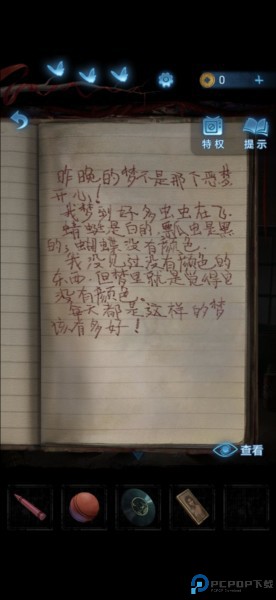 0
+
特权
提示
昨晚的梦不是那个恶梦
开心！
我梦到好多虫虫在飞.
蜻蜓是白的 瓢虫是黑
的, 蝴蝶没有颜色.
我没见过没有颜色的
东西, 但梦里就是觉得它
没有颜色.
每天都是这样的梦
该有多好！
查看
PCPOP下载